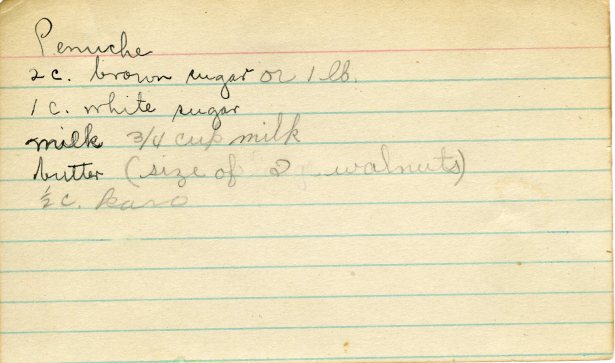 Penuche
2 c. brown sugar or 1 lb.
1 c. white sugar
milk 3/4 cup milk
butter (size of 2 walnuts)
½ c. Karo